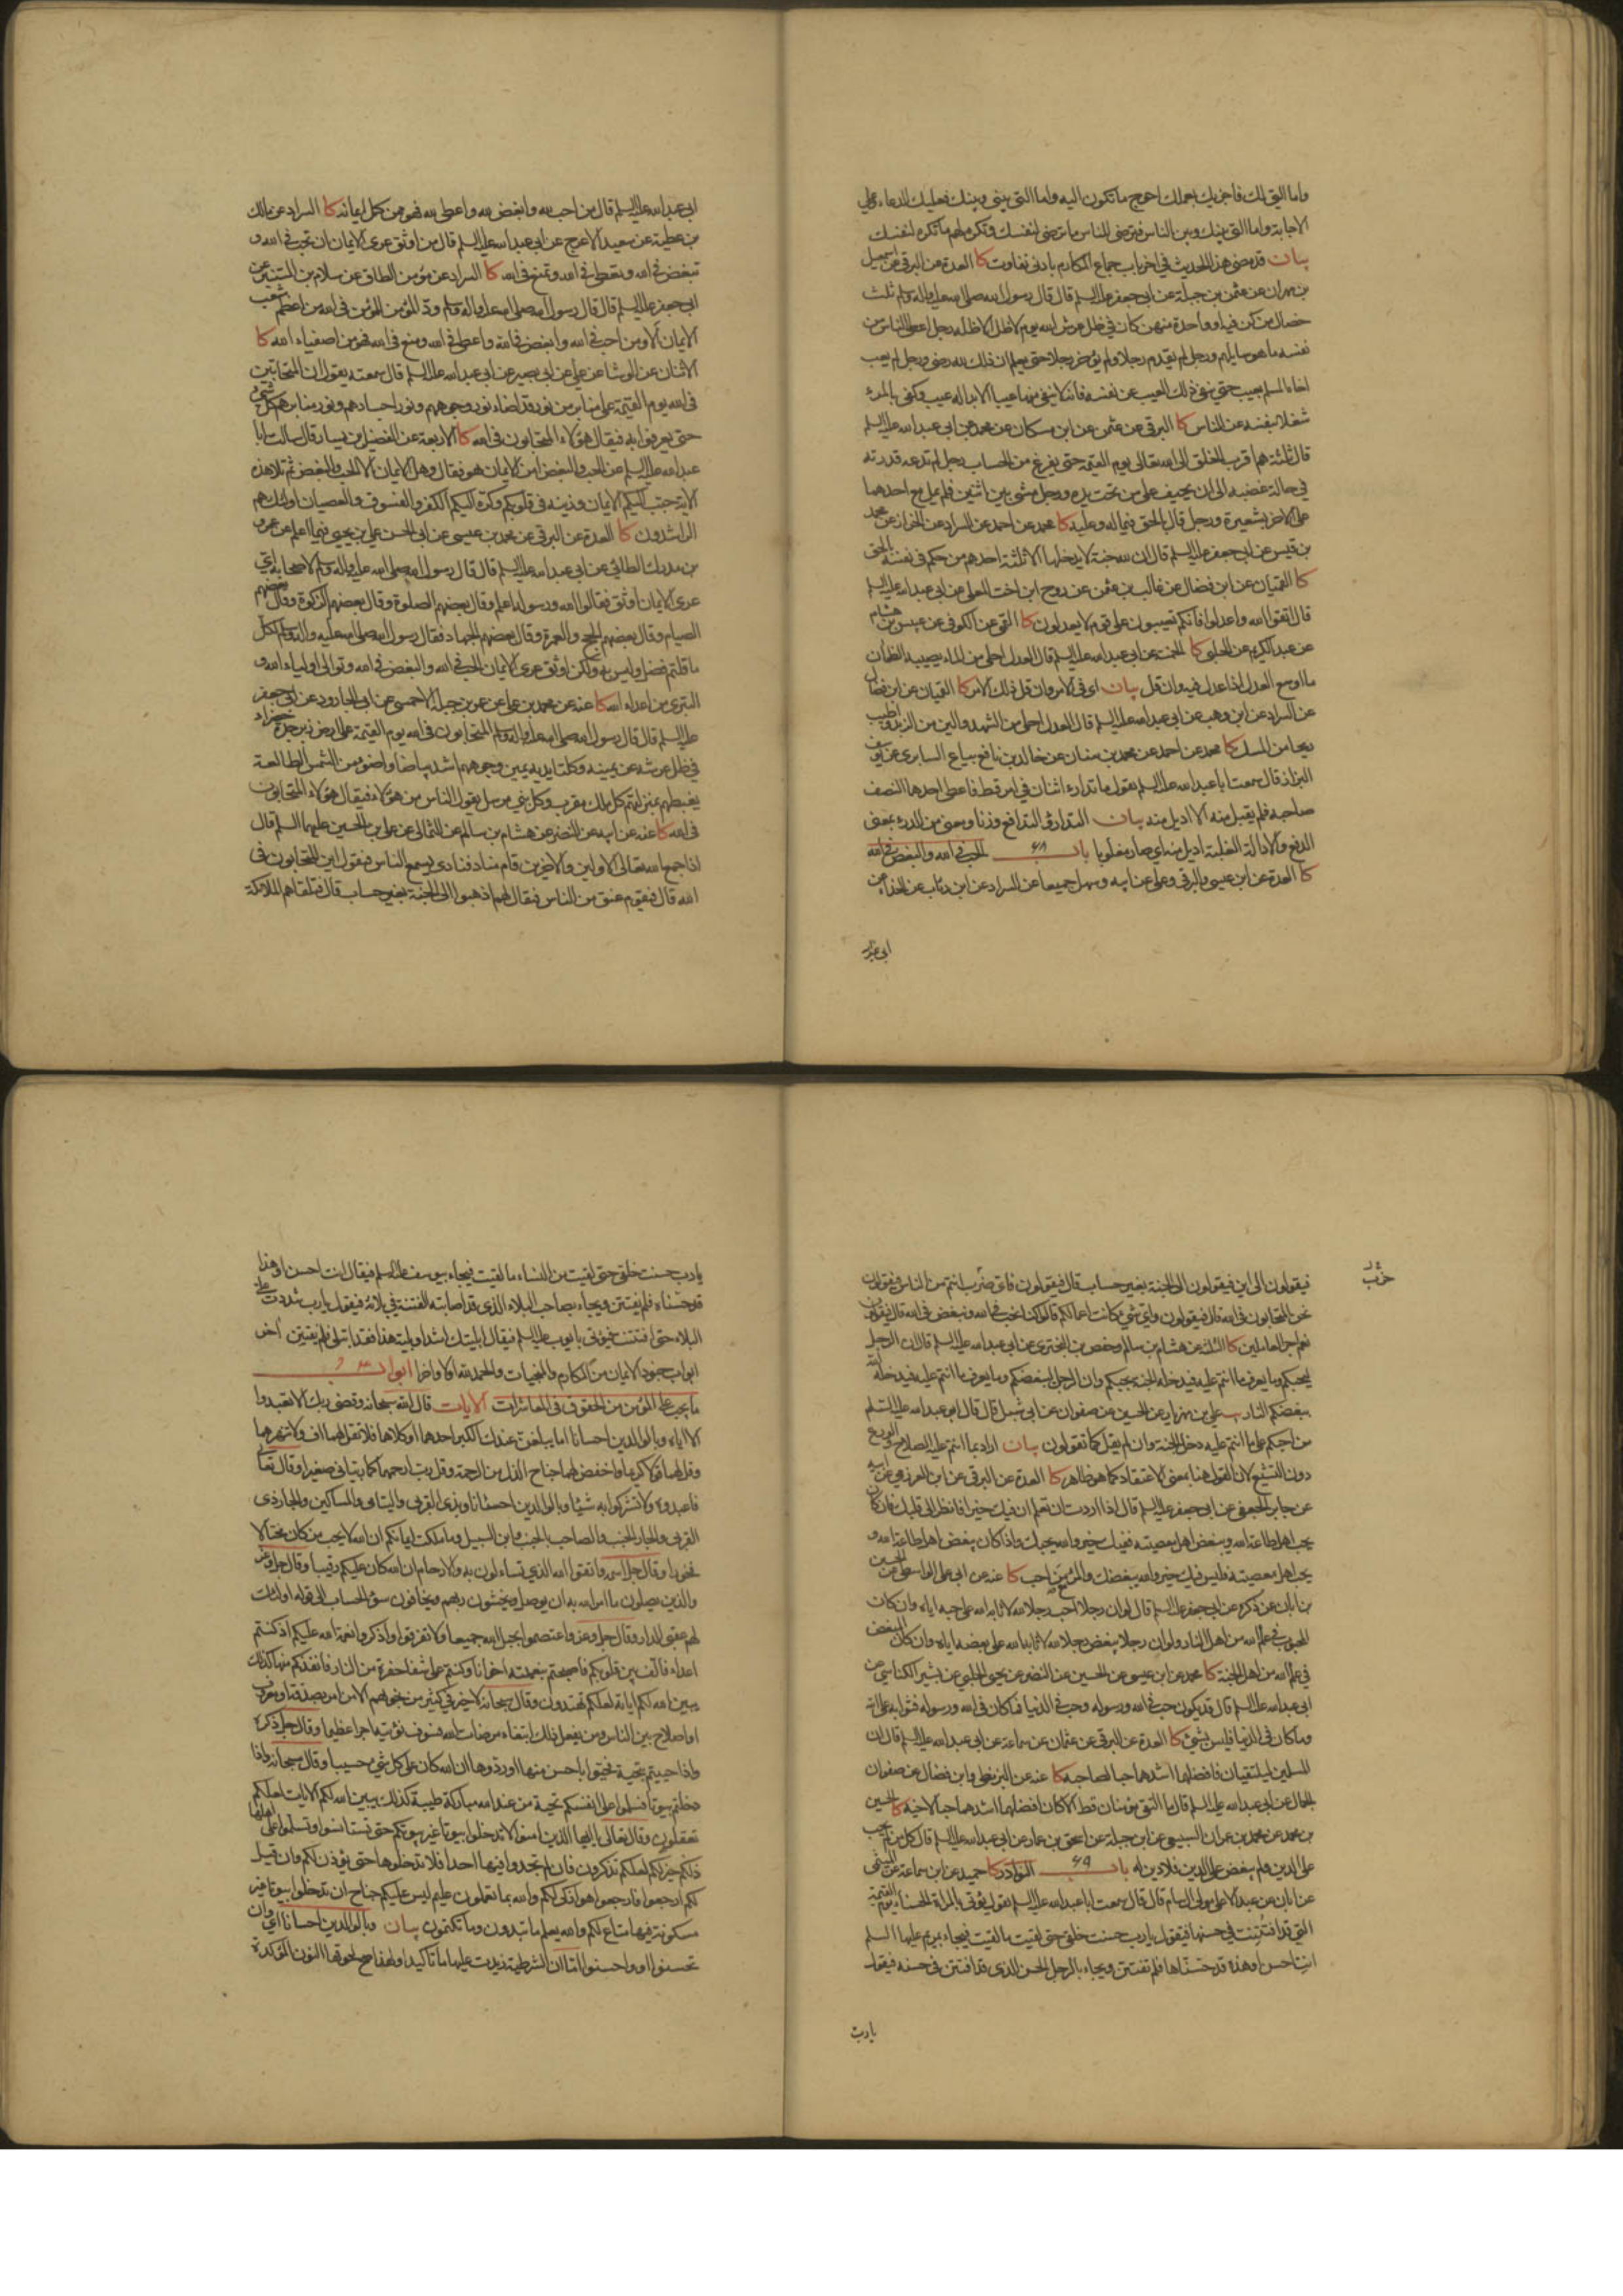 واما التي لك فاجزيك بعملك احوج ما تكون اليه واما التي بيني وبينك فعليك الدعاء وعلي
الاجابة واما التي بينك وبين الناس فترضى للناس ما ترضى لنفسك وتكره لهم ما تكره لنفسك
بيان قد مضى هذا الحديث في اخر باب جماع المكارم بادنى تفاوت كا العدة عن البرقي عن اسمعيل
بن مهران عن عثمن بن جبلة عن ابي جعفر عليه السلم قال قال رسول الله صلى الله عليه واله وسلم ثلث
خصال من كن فيه او واحدة منهن كان في ظل عرش الله يوم لا ظل الا ظله رجل اعطى الناس من
نفسه ما هو سايلهم ورجل لم يقدم رجلا ولم يؤخر رجلا حتى يعلم ان ذلك لله رضى ورجل لم يعب
اخاه المسلم بعيب حتى ينفي ذلك العيب عن نفسه فانه لا ينفي منها عيبا الا بدا له عيب وكفى بالمرء
شغلا بنفسه عن الناس كا البرقي عن عثمن عن ابن مسكان عن محمد عن ابي عبد الله عليه السلم
قال ثلثة هم اقرب الخلق الى الله تعالى يوم القيمة حتى يفرغ من الحساب رجل لم تدعه قدرته
في حالة غضبه الى ان يحيف على من تحت يده ورجل مشى بين اثنين فلم يمل مع احدهما
على الاخر بشعيرة ورجل قال بالحق فيما له وعليه كا محمد عن احمد عن السراد عن الخراز عن محمد
بن قيس عن ابي جعفر عليه السلم قال ان لله جنة لا يدخلها الا ثلثة احدهم من حكم في نفسه بالحق
كا القميان عن ابن فضال عن غالب بن عثمن عن روح ابن اخت المعلى عن ابي عبد الله عليه السلم
قال اتقوا الله واعدلوا فانكم تعيبون على قوم لا يعدلون كا القمي عن الكوفي عن عبيس بن هشام
عن عبد الكريم عن الحلبي كا الخمسة عن ابي عبد الله عليه السلم قال العدل احلى من الماء يصيبه الظمان
ما اوسع العدل اذا عدل فيه وان قل بيان اي في الامر وان قل ذلك الامر كا القميان عن ابن فضال
عن السراد عن ابن وهب عن ابي عبد الله عليه السلم قال العدل احلى من الشهد والين من الزبد واطيب
ريحا من المسك كا محمد عن احمد عن محمد بن سنان عن خالد بن نافع بياع السابري عن يوسف
البزاز قال سمعت ابا عبد الله عليه السلم يقول ما تدارء اثنان في امر قط فاعطى احدهما النصف
صاحبه فلم يقبل منه الا اديل منه بيان التدارؤ التدافع وزنا ومعنى من الدرء بمعنى
الدفع والادالة الغلبة اديل منه اي صار مغلوبا باب ٦٨ الحب في الله والبغض في الله
كا العدة عن ابن عيسى والبرقي وعلي عن ابيه وسهل جميعا عن السراد عن ابن رئاب عن الحذاء عن
ابي عبد
ابي عبد الله عليه السلم قال من احب لله وابغض لله واعطى لله فهو ممن كمل ايمانه كا السراد عن مالك
بن عطية عن سعيد الاعرج عن ابي عبد الله عليه السلم قال من اوثق عرى الايمان ان تحب في الله و
تبغض في الله وتعطي في الله وتمنع في الله كا السراد عن مؤمن الطاق عن سلام بن المستنير عن
ابي جعفر عليه السلم قال قال رسول الله صلى الله عليه واله وسلم ود المؤمن المؤمن في الله من اعظم شعب
الايمان الا ومن احب في الله وابغض في الله واعطى في الله ومنع في الله فهو من اصفياء الله كا
الاثنان عن الوشا عن علي عن ابي بصير عن ابي عبد الله عليه السلم قال سمعته يقول ان المتحابين
في الله يوم القيمة على منابر من نور قد اضاء نور وجوههم ونور اجسادهم ونور منابرهم كل شيء
حتى يعرفوا به فيقال هؤلاء المتحابون في الله كا الاربعة عن الفضيل بن يسار قال سالت ابا
عبد الله عليه السلم عن الحب والبغض امن الايمان هو فقال وهل الايمان الا الحب والبغض ثم تلا هذه
الاية حبب اليكم الايمان وزينه في قلوبكم وكره اليكم الكفر والفسوق والعصيان اولئك هم
الراشدون كا العدة عن البرقي عن محمد بن عيسى عن ابي الحسن علي بن يحيى فيما اعلم عن عمرو
بن مدرك الطائي عن ابي عبد الله عليه السلم قال قال رسول الله صلى الله عليه واله وسلم لاصحابه اي
عرى الايمان اوثق فقالوا الله ورسوله اعلم وقال بعضهم الصلوة وقال بعضهم الزكوة وقال بعضهم
الصيام وقال بعضهم الحج والعمرة وقال بعضهم الجهاد فقال رسول الله صلى الله عليه واله وسلم لكل
ما قلتم فضل وليس به ولكن اوثق عرى الايمان الحب في الله والبغض في الله وتوالي اولياء الله و
التبري من اعداء الله كا عنه عن محمد بن علي عن عمر بن جبلة الاحمسي عن ابي الجارود عن ابي جعفر
عليه السلم قال قال رسول الله صلى الله عليه واله وسلم المتحابون في الله يوم القيمة على ارض زبرجدة خضراء
في ظل عرشه عن يمينه وكلتا يديه يمين وجوههم اشد بياضا واضوء من الشمس الطالعة
يغبطهم بمنزلتهم كل ملك مقرب وكل نبي مرسل يقول الناس من هؤلاء فيقال هؤلاء المتحابون
في الله كا عنه عن ابيه عن النضر عن هشام بن سالم عن الثمالي عن علي بن الحسين عليهما السلم قال
اذا جمع الله تعالى الاولين والاخرين قام مناد فنادى يسمع الناس فيقول اين المتحابون في
الله قال فيقوم عنق من الناس فيقال لهم اذهبوا الى الجنة بغير حساب قال فتلقاهم الملائكة
فيقولون الى اين فيقولون الى الجنة بغير حساب قال فيقولون فاي ضرب انتم من الناس فيقولون
حزب
نحن المتحابون في الله قال فيقولون واي شيء كانت اعمالكم قالوا كنا نحب في الله ونبغض في الله قال فيقولون
نعم اجر العاملين كا الثلثة عن هشام بن سالم وحفص بن البختري عن ابي عبد الله عليه السلم قال ان الرجل
ليحبكم وما يعرف ما انتم عليه فيدخله الله الجنة بحبكم وان الرجل ليبغضكم وما يعرف ما انتم عليه فيدخله الله
ببغضكم النار يب علي بن مهزيار عن الحسين عن صفوان عن ابي شبل قال قال ابو عبد الله عليه السلم
من احبكم على ما انتم عليه دخل الجنة وان لم يقل كما تقولون بيان اراد بما انتم عليه الصلاح والورع
دون التشيع لان القول هنا بمعنى الاعتقاد كما هو ظاهر كا العدة عن البرقي عن ابن العرزمي عن ابيه
عن جابر الجعفي عن ابي جعفر عليه السلم قال اذا اردت ان تعلم ان فيك خيرا فانظر الى قلبك فان كان
يحب اهل طاعة الله ويبغض اهل معصيته ففيك خير والله يحبك واذا كان يبغض اهل طاعة الله و
يحب اهل معصيته فليس فيك خير والله يبغضك والمرء مع من احب كا عنه عن ابي علي الواسطي عن الحسين
بن ابان عن ذكره عن ابي جعفر عليه السلم قال لو ان رجلا احب رجلا لله لاثابه الله على حبه اياه وان كان
المحبوب في علم الله من اهل النار ولو ان رجلا يبغض رجلا لله لاثابه الله على بغضه اياه وان كان المبغض
في علم الله من اهل الجنة كا محمد عن ابن عيسى عن الحسين عن النضر عن يحيى الحلبي عن بشير الكناسي عن
ابي عبد الله عليه السلم قال قد يكون حب في الله ورسوله وحب في الدنيا فما كان في الله ورسوله فثوابه على الله
وما كان في الدنيا فليس بشيء كا العدة عن البرقي عن عثمان عن سماعة عن ابي عبد الله عليه السلم قال ان
المسلمين ليلتقيان فافضلهما اشدهما حبا لصاحبه كا عنه عن البزنطي وابن فضال عن صفوان
الجمال عن ابي عبد الله عليه السلم قال ما التقى مؤمنان قط الا كان افضلهما اشدهما حبا لاخيه كا الحسين
بن محمد عن محمد بن عمران السبيعي عن ابن جبلة عن اسحق بن عمار عن ابي عبد الله عليه السلم قال كل من لم يحب
على الدين ولم يبغض على الدين فلا دين له باب ٦٩ النوادر كا حميد عن ابن سماعة عن الميثمي
عن ابان عن عبد الاعلى مولى ال سام قال قال سمعت ابا عبد الله عليه السلم يقول يؤتى بالمراة الحسناء يوم القيمة
التي قد افتتنت في حسنها فيقول يا رب حسنت خلقي حتى لقيت ما لقيت فيجاء بمريم عليها السلم
انت احسن او هذه قد حسناها فلم تفتتن ويجاء بالرجل الحسن الذي قد افتتن في حسنه فيقول
يا رب
يا رب حسنت خلقي حتى لقيت من النساء ما لقيت فيجاء بيوسف عليه السلم فيقال انت احسن او هذا
قد حسناه فلم يفتتن ويجاء بصاحب البلاء الذي قد اصابته الفتنة في بلائه فيقول يا رب شددت علي
البلاء حتى افتتنت فيؤتى بايوب عليه السلم فيقال ابليتك اشد او بلية هذا فقد ابتلي فلم يفتتن اخر
ابواب جنود الايمان من المكارم والمنجيات والحمد لله اولا واخرا ابواب
ما يجب على المؤمن من الحقوق في المعاشرات الايات قال الله سبحانه وقضى ربك الا تعبدوا
الا اياه وبالوالدين احسانا اما يبلغن عندك الكبر احدهما او كلاهما فلا تقل لهما اف ولا تنهرهما
وقل لهما قولا كريما واخفض لهما جناح الذل من الرحمة وقل رب ارحمهما كما ربياني صغيرا وقال تعالى
فاعبدوه ولا تشركوا به شيئا وبالوالدين احسانا وبذي القربى واليتامى والمساكين والجار ذي
القربى والجار الجنب والصاحب بالجنب وابن السبيل وما ملكت ايمانكم ان الله لا يحب من كان مختالا
فخورا وقال جل اسمه واتقوا الله الذي تساءلون به والارحام ان الله كان عليكم رقيبا وقال جل وعز
والذين يصلون ما امر الله به ان يوصل ويخشون ربهم ويخافون سوء الحساب الى قوله اولئك
لهم عقبى الدار وقال جل وعز واعتصموا بحبل الله جميعا ولا تفرقوا واذكروا نعمة الله عليكم اذ كنتم
اعداء فالف بين قلوبكم فاصبحتم بنعمته اخوانا وكنتم على شفا حفرة من النار فانقذكم منها كذلك
يبين الله لكم اياته لعلكم تهتدون وقال سبحانه لا خير في كثير من نجويهم الا من امر بصدقة او معروف
او اصلاح بين الناس ومن يفعل ذلك ابتغاء مرضات الله فسوف نؤتيه اجرا عظيما وقال جل ذكره
واذا حييتم بتحية فحيوا باحسن منها او ردوها ان الله كان على كل شيء حسيبا وقال سبحانه فاذا
دخلتم بيوتا فسلموا على انفسكم تحية من عند الله مباركة طيبة كذلك يبين الله لكم الايات لعلكم
تعقلون وقال تعالى يا ايها الذين امنوا لا تدخلوا بيوتا غير بيوتكم حتى تستانسوا وتسلموا على اهلها
ذلكم خير لكم لعلكم تذكرون فان لم تجدوا فيها احدا فلا تدخلوها حتى يؤذن لكم وان قيل
لكم ارجعوا فارجعوا هو ازكى لكم والله بما تعملون عليم ليس عليكم جناح ان تدخلوا بيوتا غير
مسكونة فيها متاع لكم والله يعلم ما تبدون وما تكتمون بيان وبالوالدين احسانا اي وان
تحسنوا او واحسنوا اما ان الشرطية زيدت عليها ما تاكيدا ولهذا صح لحوقها النون المؤكدة